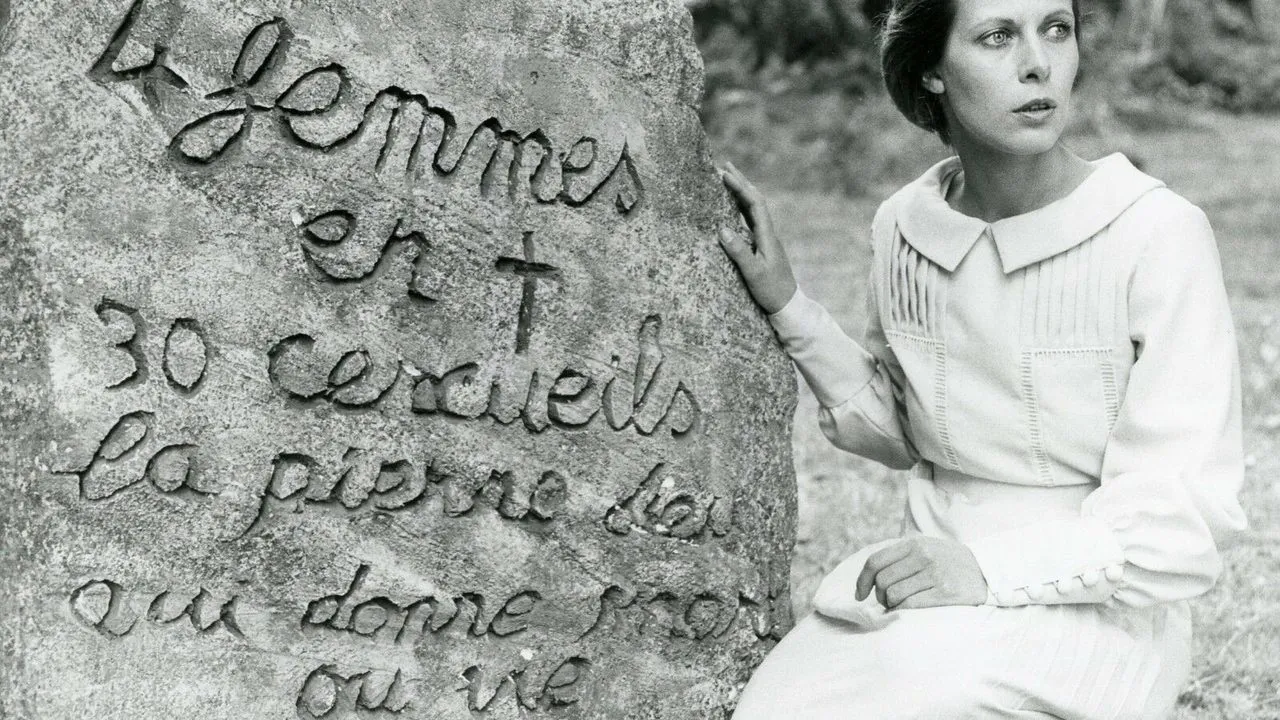 4 femmes
en †
30 cercueils
la pierre Dieu
qui donne mort
ou vie